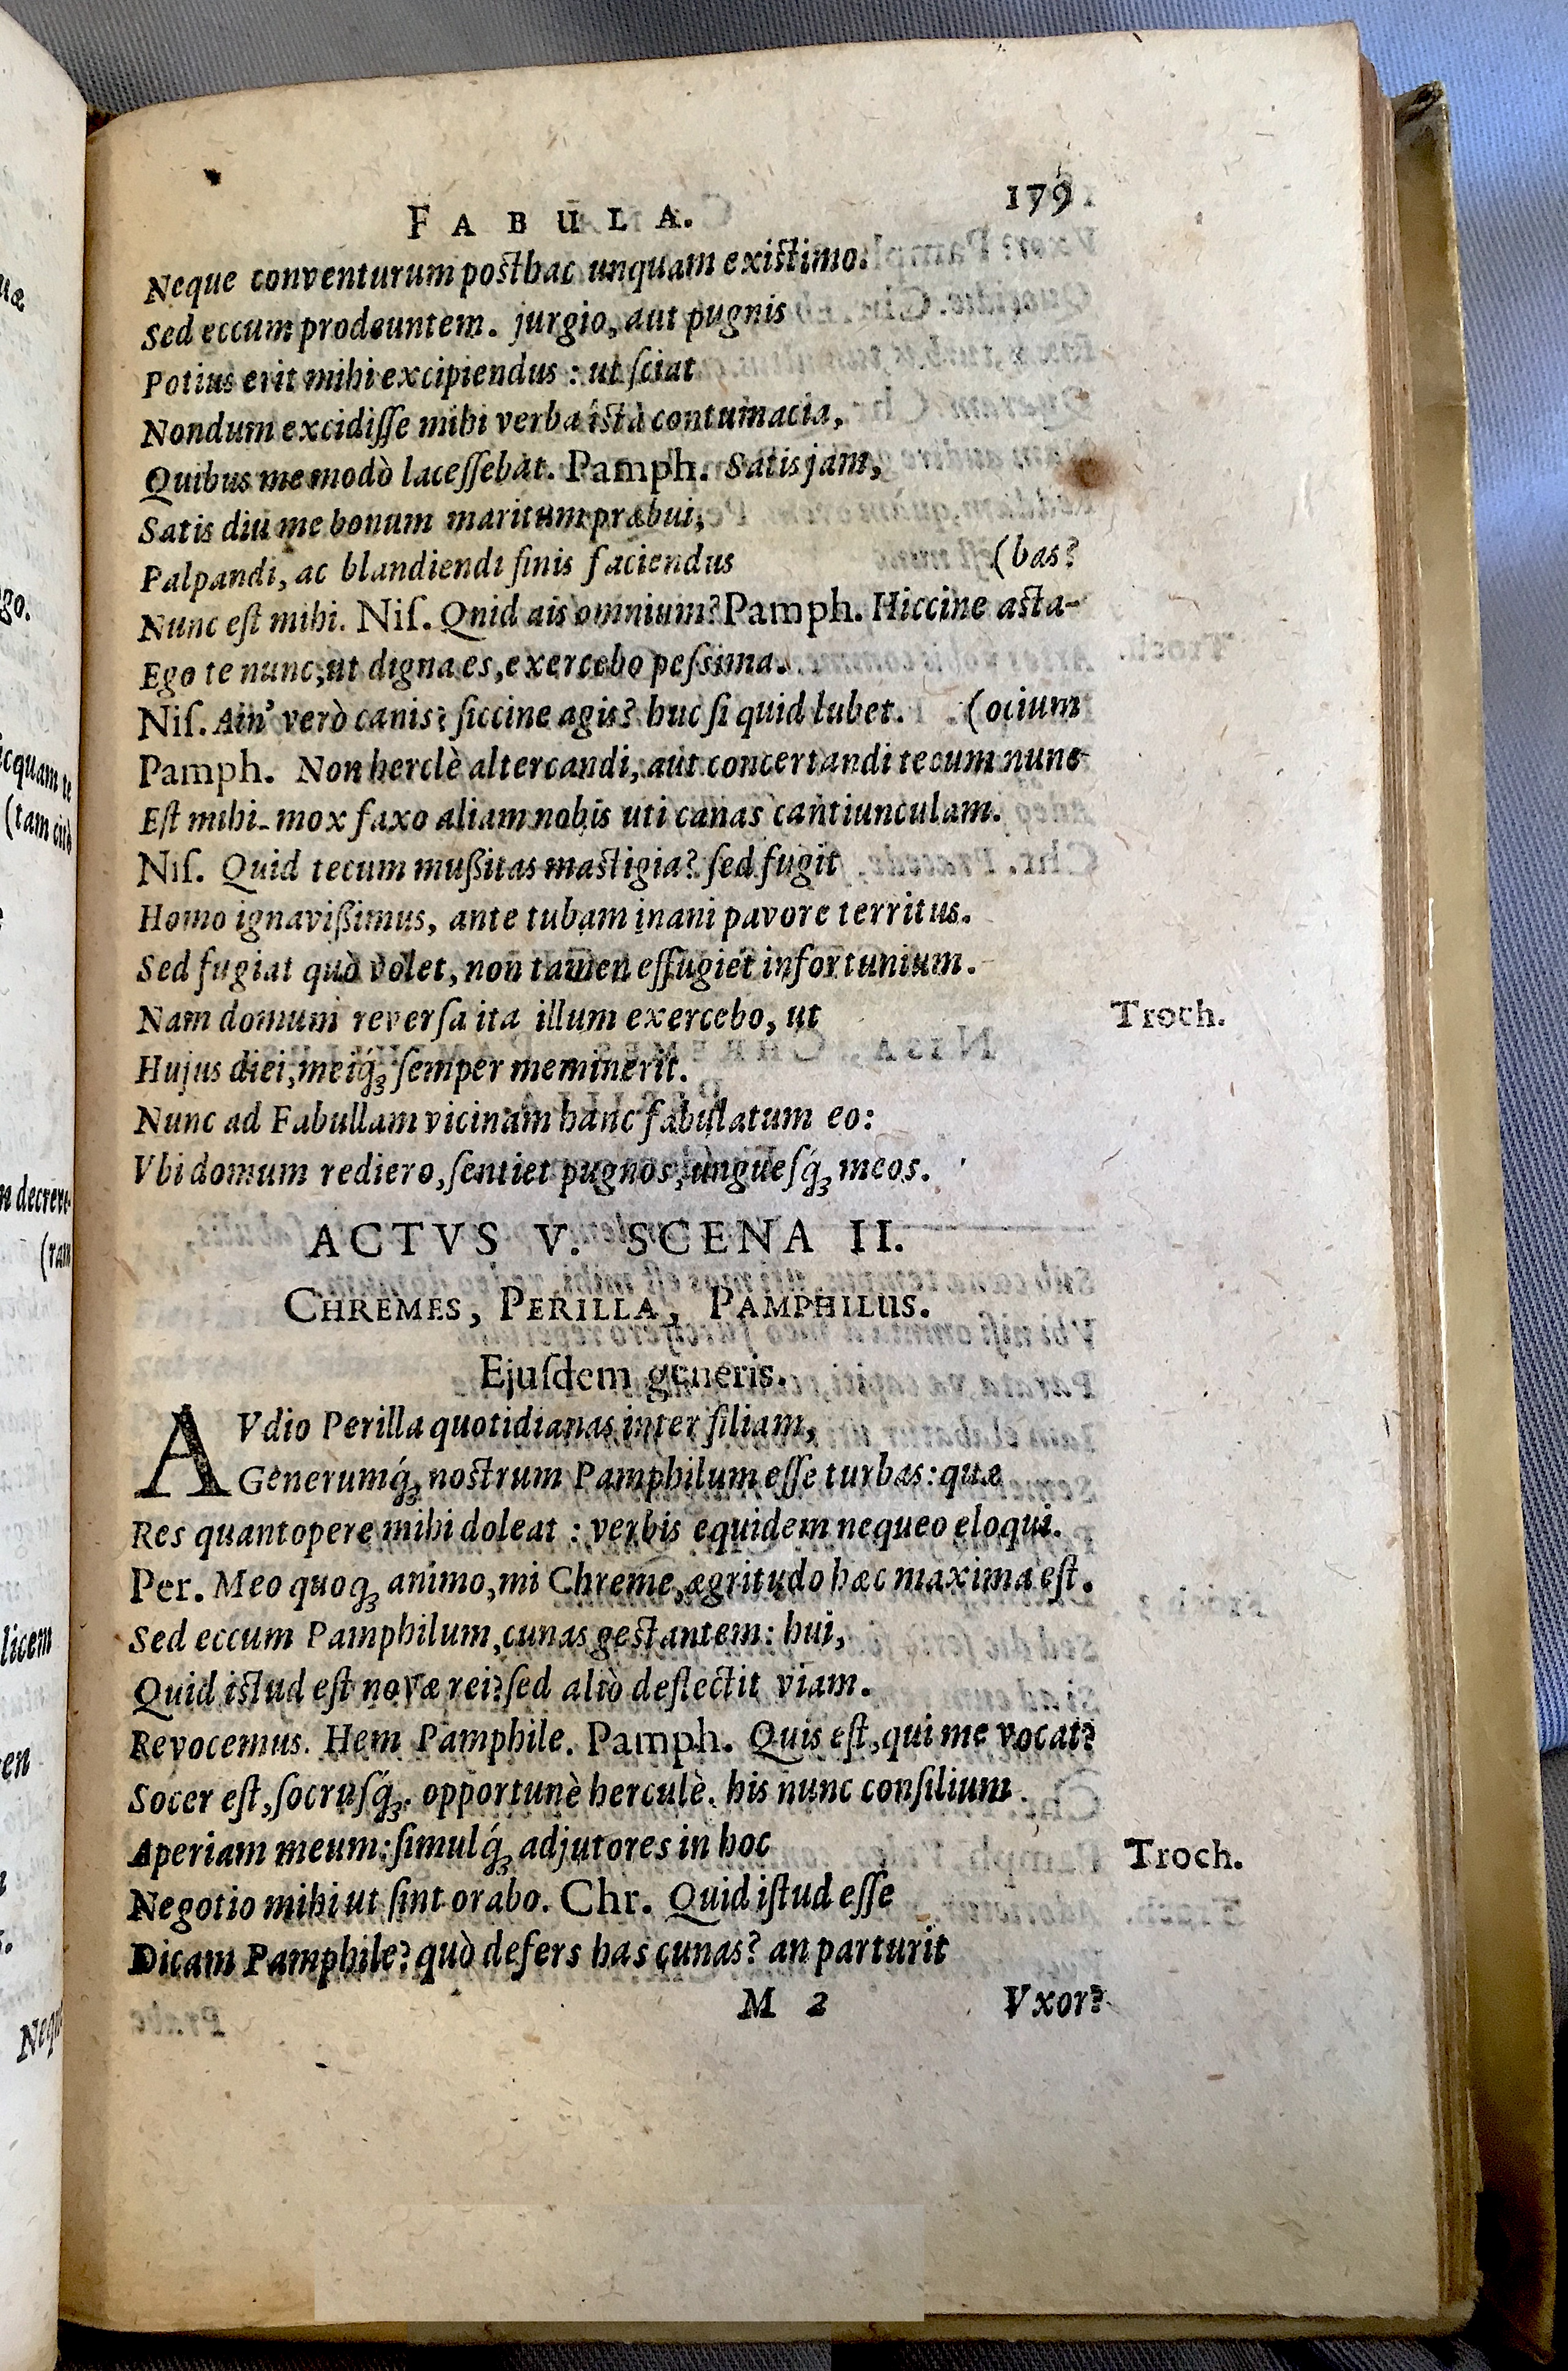 FABULA. 179
Neque conventurum posthac unquam existimo.
Sed eccum prodeuntem. jurgio, aut pugnis
Potius erit mihi excipiendus : ut ſciat
Nondum excidiſſe mihi verba istà contumacia,
Quibus me modò laceſſebat. Pamph. Satis jam,
Satis diu me bonum maritum præbui,
Palpandi, ac blandiendi finis faciendus (bas?
Nunc eſt mihi. Niſ. Qnid ais omnium? Pamph. Hiccine asta-
Ego te nunc, ut digna es, exercebo peſsima.
Niſ. Ain' verò canis? ſiccine agis? huc ſi quid lubet. (ocium
Pamph. Non herclè altercandi, aut concertandi tecum nunc
Eſt mihi. mox faxo aliam nobis uti canas cantiunculam.
Niſ. Quid tecum mußitas mastigia? ſed fugit
Homo ignavißimus, ante tubam inani pavore territus.
Sed fugiat quò volet, non tamen effugiet infortunium.
Nam domum reverſa ita illum exercebo, ut Troch.
Hujus diei, meiq́ꝫ ſemper meminerit.
Nunc ad Fabullam vicinam hanc fabulatum eo:
Vbi domum rediero, ſentiet pugnos, ungueſq́ꝫ meos.
ACTVS V. SCENA II.
CHREMES, PERILLA, PAMPHILUS.
Ejuſdem generis.
AVdio Perilla quotidianas inter filiam,
Generumq́ꝫ nostrum Pamphilum eſſe turbas: quæ
Res quantopere mihi doleat : verbis equidem nequeo eloqui.
Per. Meo quoqꝫ animo, mi Chreme, ægritudo hæc maxima eſt.
Sed eccum Pamphilum, cunas gestantem: hui,
Quid istud eſt novæ rei? ſed aliò deflectit viam.
Revocemus. Hem Pamphile. Pamph. Quis eſt, qui me vocat?
Socer eſt, ſocruſq́ꝫ. opportunè herculè. his nunc conſilium
Aperiam meum: ſimulq́ꝫ adjutores in hoc Troch.
Negotio mihi ut ſint orabo. Chr. Quid iſtud eſſe
Dicam Pamphile? quò defers has cunas? an parturit
M 2 Vxor?